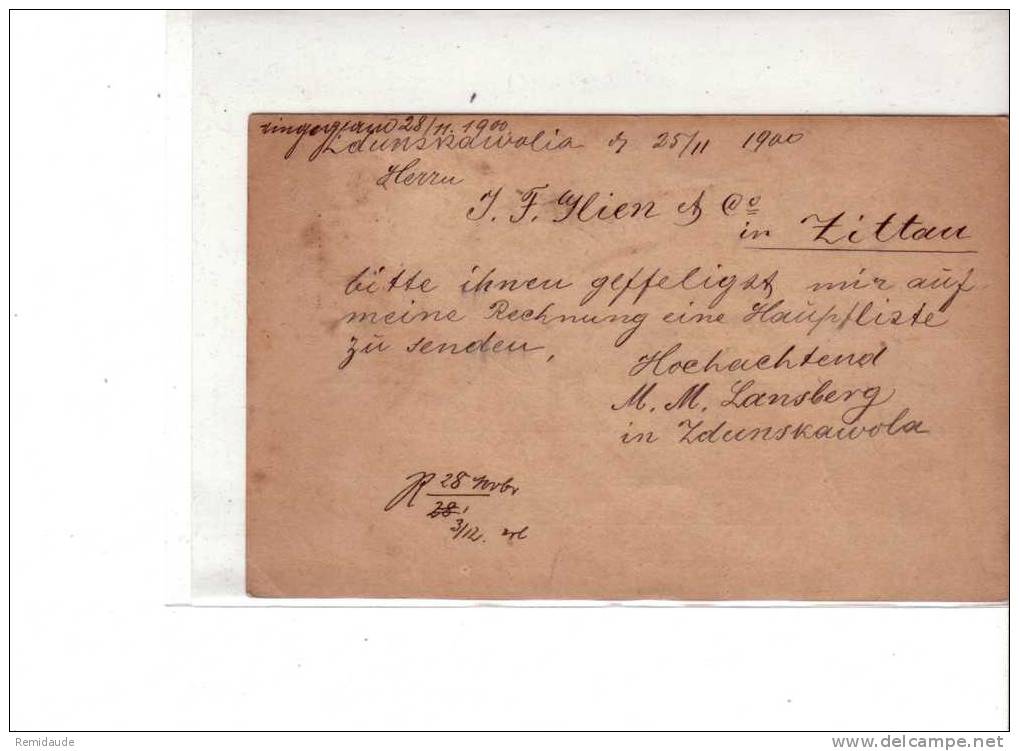 28/11. 1900
Zdunskawolia d 25/11 1900
Herrn
J. F. Glien & Co
in Zittau
bitte ihnen geffeligst mir auf
meine Rechnung eine Hauptliste
zu senden,
Hochachtend
M. M. Lansberg
in Zdunskawola
R 28 Novbr
28.
3/12. erl
Remidaude
www.delcampe.net